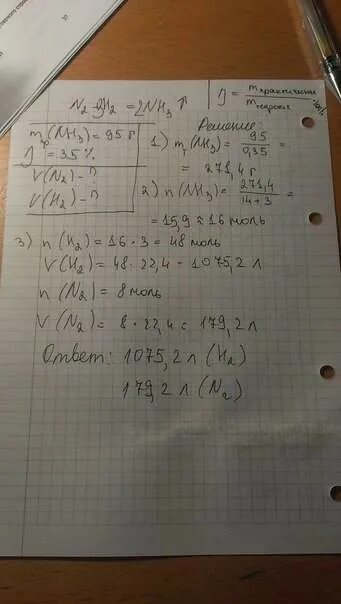 N₂ + 3H₂ = 2NH₃ ↑
η = m практичес / m теорети · 100%
m пр (NH₃) = 95 г
η = 35 %
V(N₂) - ?
V(H₂) - ?
Решение:
1) m т (NH₃) = 95 / 0,35 =
= 271,4 г
2) n (NH₃) = 271,4 / 14+3 =
= 15,9 ≈ 16 моль
3) n (H₂) = 16 · 3 = 48 моль
V(H₂) = 48 · 22,4 = 1075,2 л
n (N₂) = 8 моль
V (N₂) = 8 · 22,4 = 179,2 л
Ответ: 1075,2 л (H₂)
179,2 л (N₂)